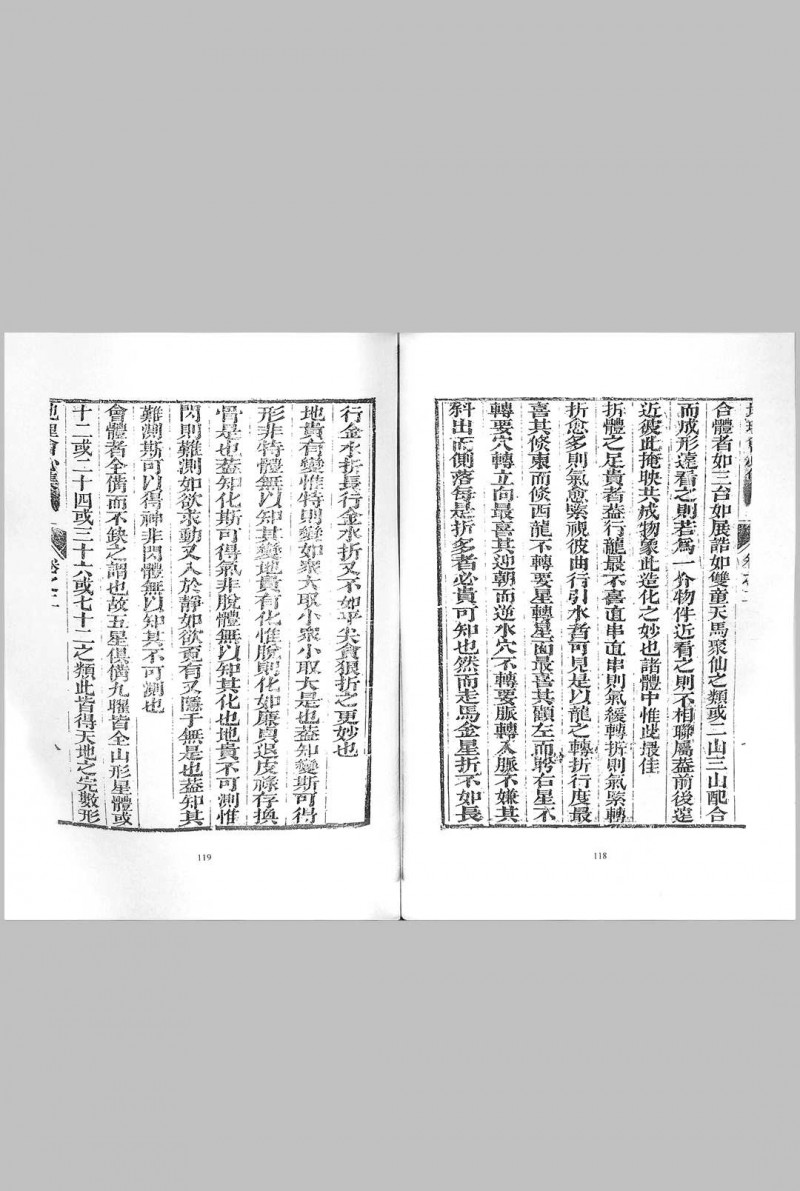 合體者如三台如展誥如雙童天馬聚仙之類或二山三山配合
而成形遠看之則若爲一介物件近看之則不相聯屬葢前後遠
近彼此掩映共成物象此造化之妙也諸體中惟此最佳
折體之足貴者葢行龍最不喜直串直串則氣緩轉折則氣緊轉
折愈多則氣愈緊視彼曲行引水者可見是以龍之轉折行度最
喜其倏東而倏西龍不轉要星轉星面最喜其顧左而聘右星不
轉要穴轉立向最喜其迎朝而逆水穴不轉要脈轉入脈不嫌其
斜出而側落每是折多者必貴可知也然而走馬金星折不如長
118
行金水折長行金水折又不如平尖貪狼折之更妙也
地貴有變惟特則變如衆大取小衆小取大是也葢知變斯可得
形非特體無以知其變地貴有化惟脫則化如廉貞退皮祿存換
骨是也葢知化斯可得氣非脫體無以知其化也地貴不可測惟
閃則難測如欲求動又入於靜如欲覓有又隱于無是也葢知其
難測斯可以得神非閃體無以知其不可測也
會體者全偹而不缺之謂也故五星俱偹九曜皆全山形星體或
十二或二十四或三十六或七十二之類此皆得天地之完數形
地理會心集
卷之二
八
119